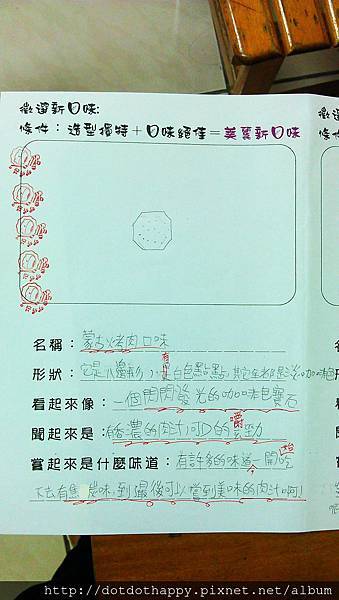 徵選新口味:
條件：造型獨特＋口味絕佳＝美翼新口味
名稱：蒙古烤肉口味
形狀：它是八邊形,小有白色點點,其它都是淡咖啡色
看起來像：一個閃閃發光的咖啡色寶石
聞起來是：香濃的肉汁,可口的嚼勁
嘗起來是什麼味道：有許多的味道一開始吃
下去有焦炭味,到最後可以嘗到美味的肉汁啊!
徵選
條件
http://dotdothappy.pixnet.net/album